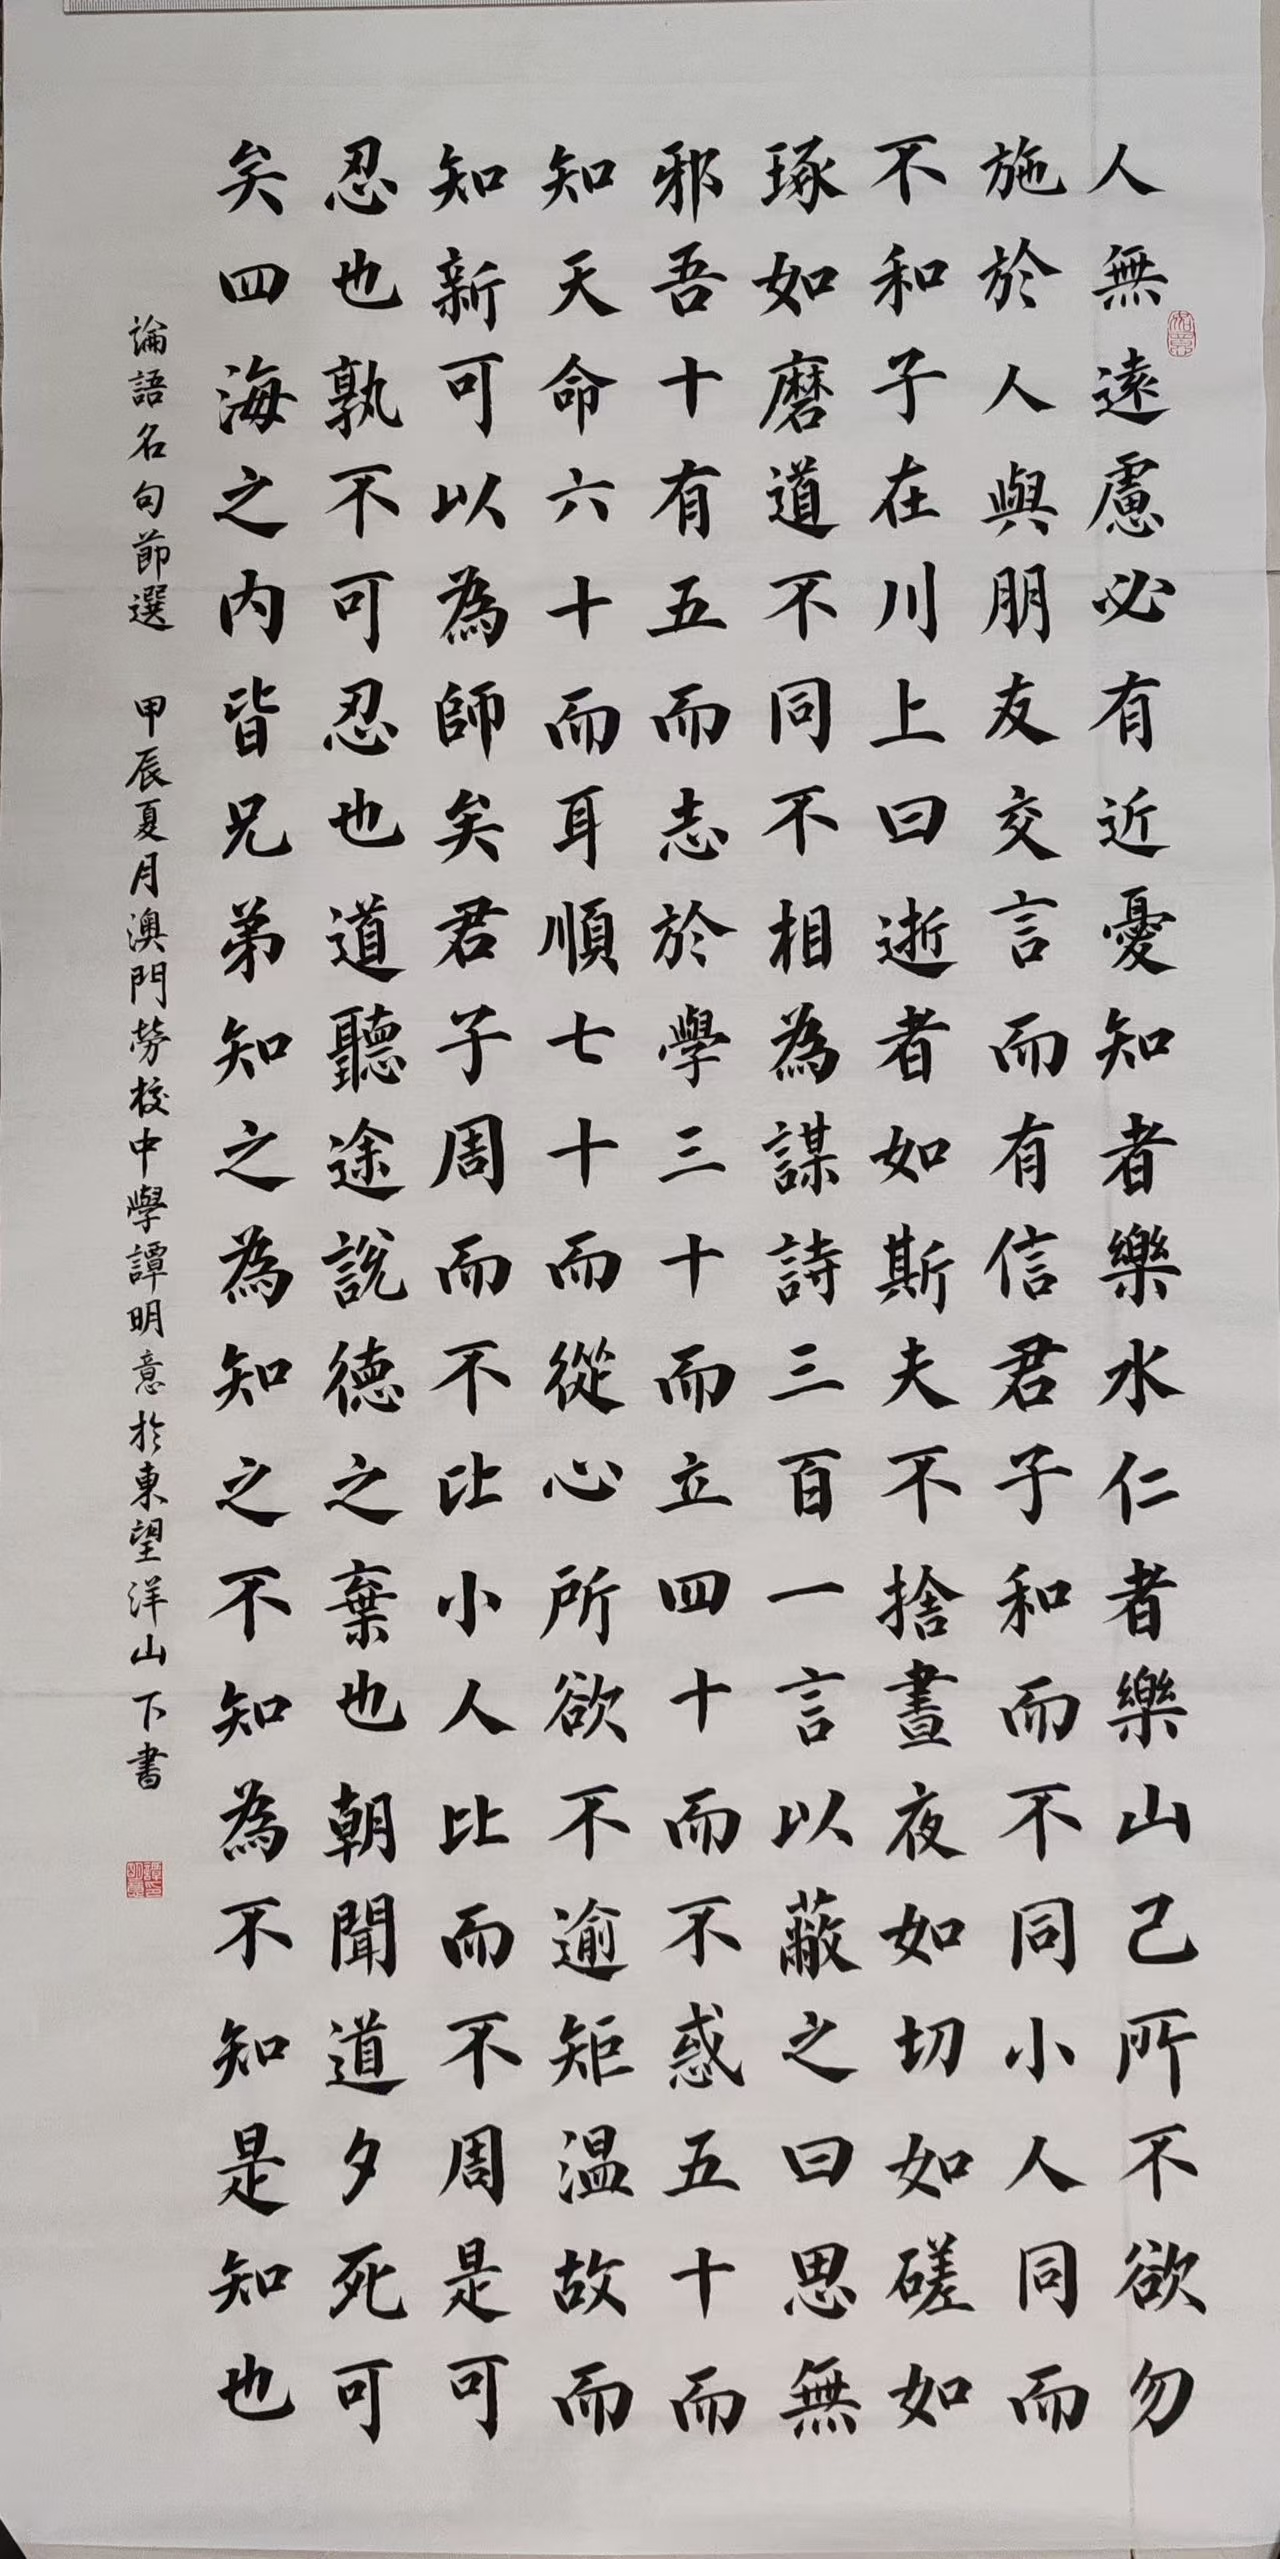 人無遠慮必有近憂知者樂水仁者樂山己所不欲勿
施於人與朋友交言而有信君子和而不同小人同而
不和子在川上曰逝者如斯夫不捨晝夜如切如磋如
琢如磨道不同不相為謀詩三百一言以蔽之曰思無
邪吾十有五而志於學三十而立四十而不惑五十而
知天命六十而耳順七十而從心所欲不逾矩溫故而
知新可以為師矣君子周而不比小人比而不周是可
忍也孰不可忍也道聽途說德之棄也朝聞道夕死可
矣四海之內皆兄弟知之為知之不知為不知是知也
論語名句節選 甲辰夏月澳門勞校中學譚明意於東望洋山下書